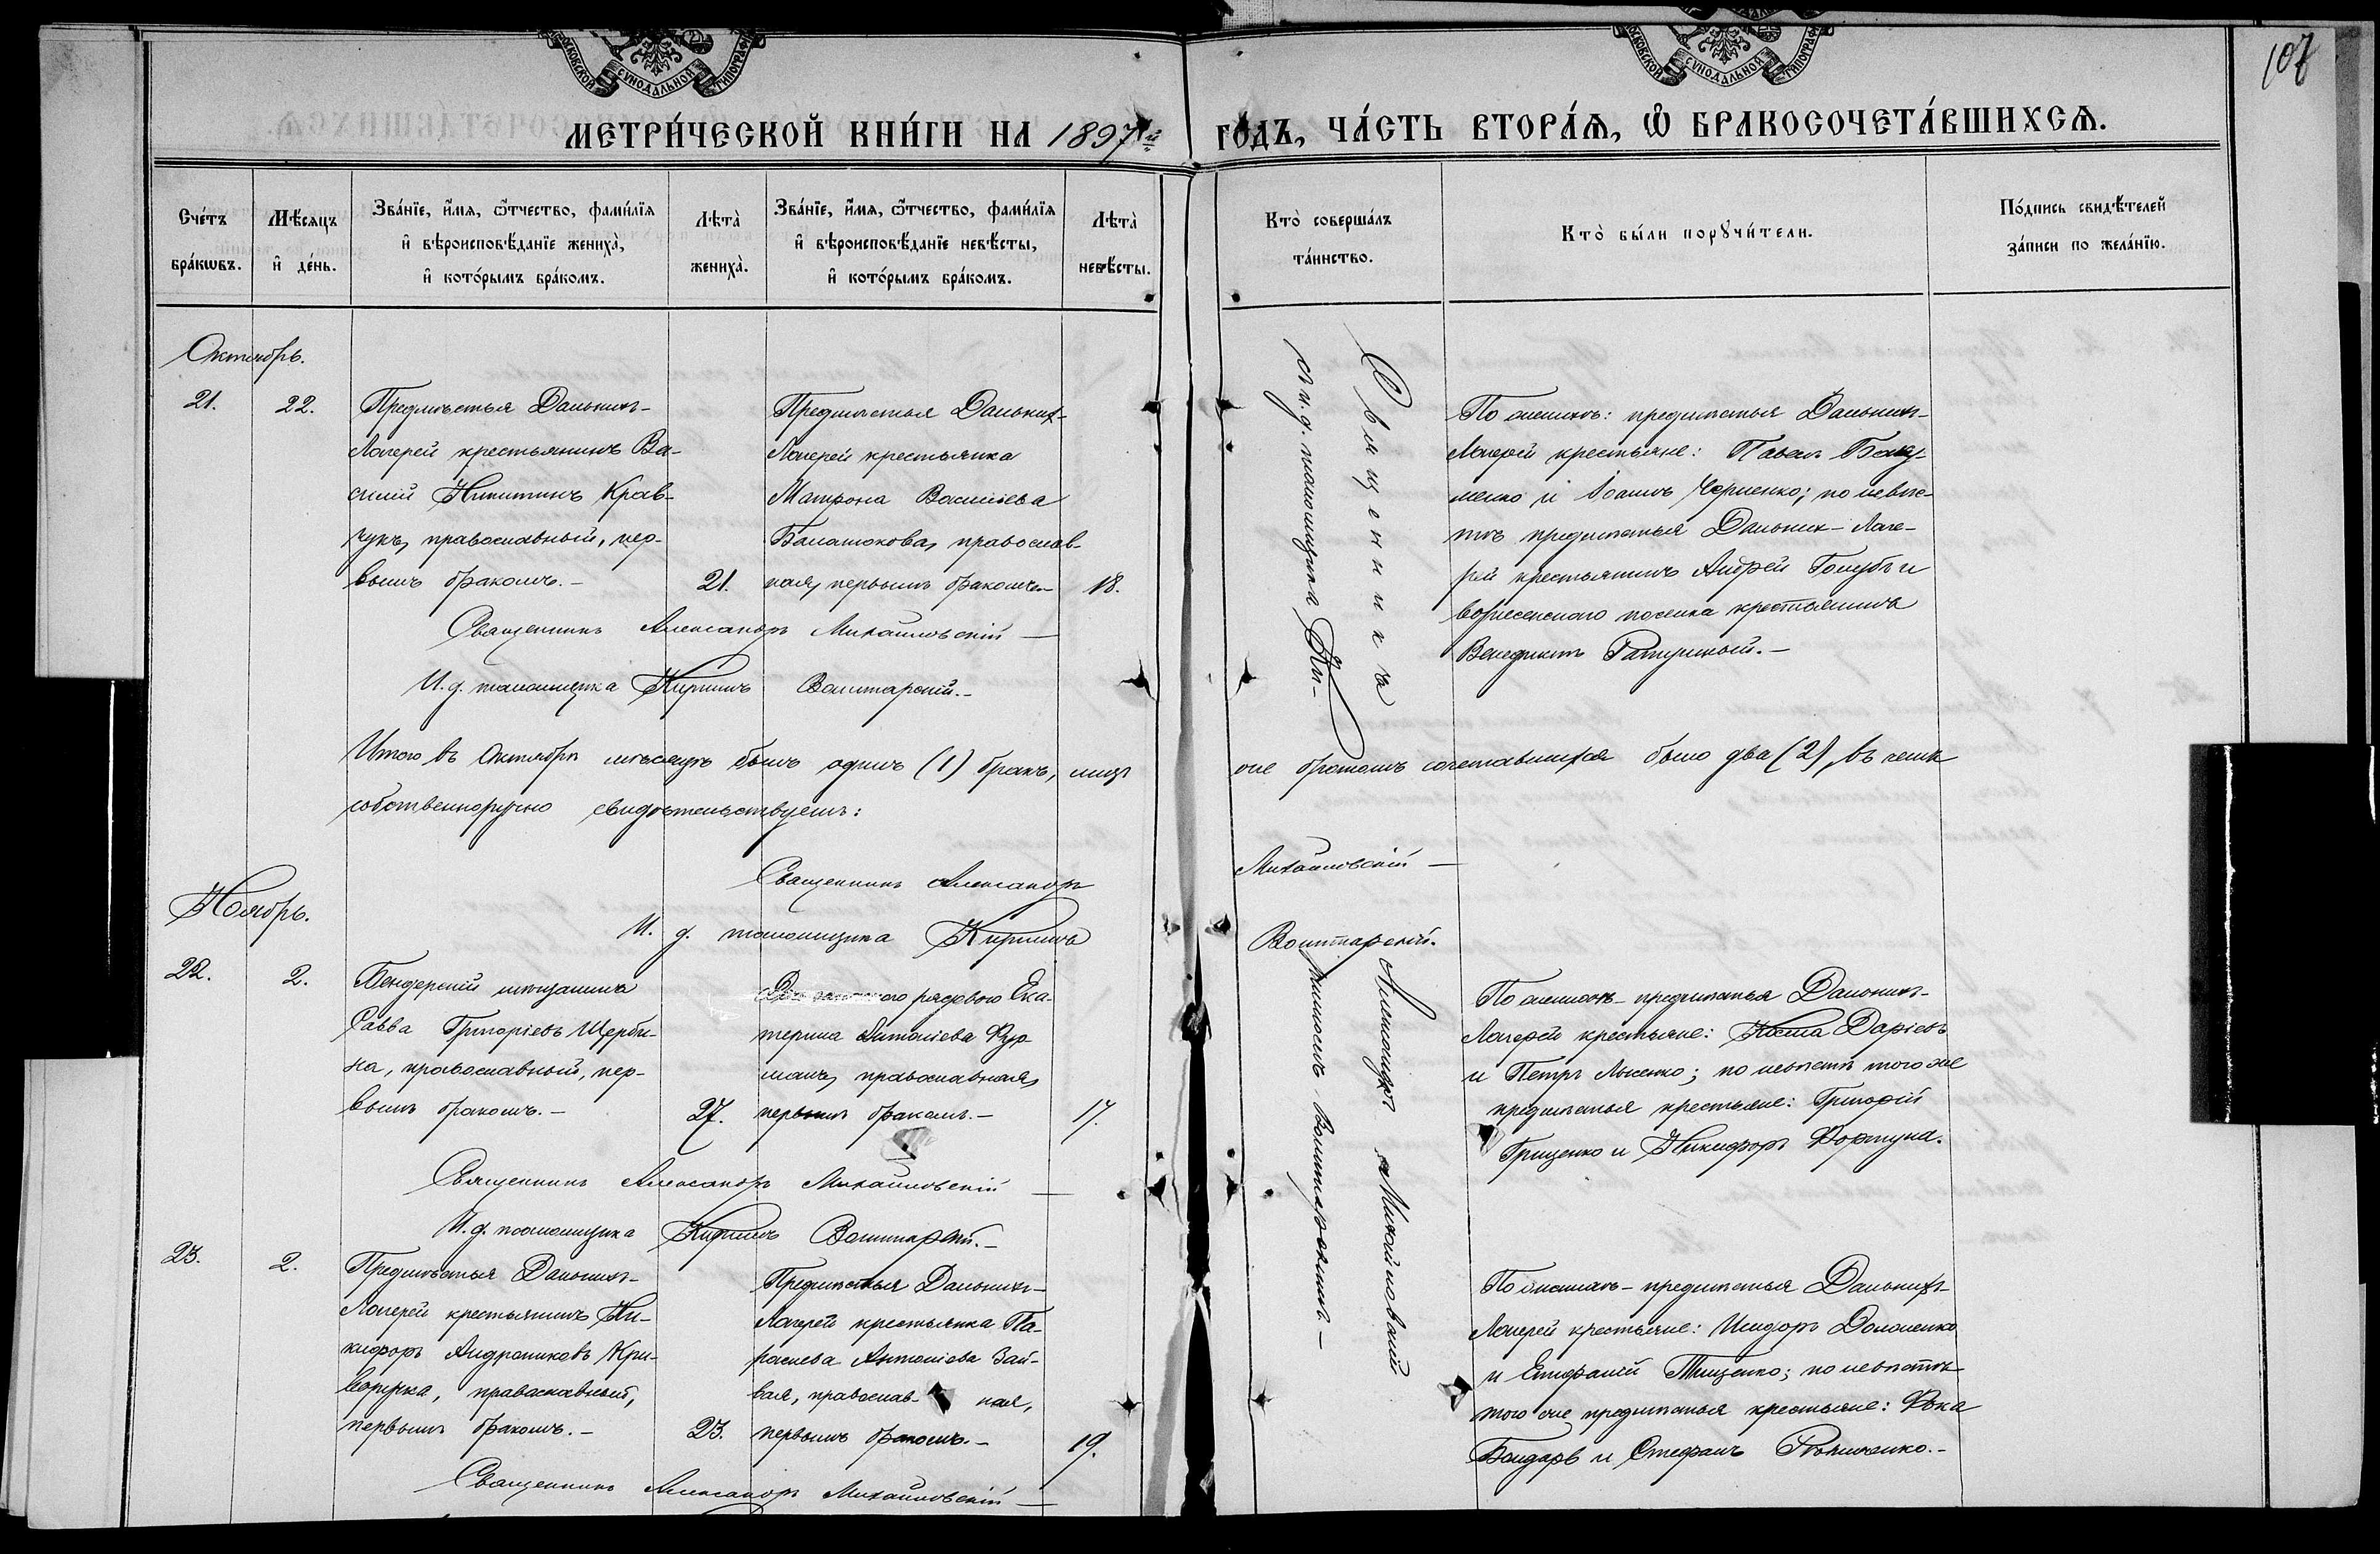 107
МОСКОВСКОЙ СѴНОДАЛЬНОЙ ТИПОГРАФ
МОСКОВСКОЙ СѴНОДАЛЬНОЙ ТИПОГРАФ
МЕТРИ́ЧЕСКОЙ КНИ́ГИ НА 1897й ГО́ДЪ, ЧА́СТЬ ВТОРА́Ѧ, Ѽ БРАКОСОЧЕТА́ВШИХСѦ.
Сче́тъ
бра́кѡвъ.
Мѣ́сяцъ
и҆ де́нь.
Зва́нїе, и҆́мѧ, ѻ҆́тчество, фамилїѧ
и҆ вѣроисповѣ́данїе жениха̀,
и҆ кото́рымъ бра́комъ.
Лѣта̀
жениха̀.
Зва́нїе, и҆́мѧ, ѻ҆́тчество, фамилїѧ
и҆ вѣроисповѣ́данїе невѣ́сты,
и҆ кото́рымъ бра́комъ.
Лѣта̀
невѣ́сты.
Кто̀ соверша́лъ
та́инство.
Кто̀ бы́ли порꙋчи́тели.
По́дпись свидѣ́телей
за́писи по жела́нїю.
Октябрь.
21.
22.
Предмѣстья Дальнихъ-
Лагерей крестьянинъ Ва-
силій Никитинъ Крав-
чукъ, православный, пер-
вымъ бракомъ.-
21.
Предмѣстья Дальнихъ-
Лагерей крестьянка
Матрона Васильева
Балашокова, православ-
ная, первымъ бракомъ-
18.
По женихѣ: предмѣстья Дальнихъ-
Лагерей крестьяне: Павелъ
и Іоаннъ Черненко; по невѣс-
тѣ предмѣстья Дальнихъ-Лаге-
рей крестьянинъ Андрей Голубъ и
вознесенскаго поселка крестьянинъ
Венедиктъ
Священникъ Александръ Михайловскій-
И. д. псаломщика Кириллъ Волштарскій.-
Итого въ Октябрѣ мѣсяцѣ былъ одинъ (1) бракъ, лицъ
же бракомъ сочетавшихся было два (2), въ чемъ
собственноручно свидѣтельствуемъ:
Священникъ Александръ Михайловскій-
И. д. псаломщика Кириллъ Волштарскій.
Ноябрь.
22.
2.
Бендерскій мѣщанинъ
Савва Григоріевъ Щерби-
на, православный, пер-
вымъ бракомъ.-
27.
рядового Ека-
терина Антоніева Фур-
манъ, православная,
первымъ бракомъ.-
17.
По женихѣ-предмѣстья Дальнихъ-
Лагерей крестьяне: Косма Даріевъ
и Петръ Лысенко; по невѣстѣ того же
предмѣстья крестьяне: Григорій
Гриценко и Никифоръ Фортуна.
Священникъ Александръ Михайловскій-
И. д. псаломщика Кириллъ Волштарскій.-
23.
2.
Предмѣстья Дальнихъ-
Лагерей крестьянинъ Ни-
кифоръ Андрониковъ Кри-
воручка, православный,
первымъ бракомъ.-
23.
Предмѣстья Дальнихъ-
Лагерей крестьянка Па-
расева Антоніева Зай-
вая, православ- ная,
первымъ бракомъ.-
19.
По женихѣ-предмѣстья Дальнихъ-
Лагерей крестьяне: Исидоръ Доломенко
и Епифаній Тищенко; по невѣстѣ
того же предмѣстья крестьяне: Фока
Бондарь и Стефанъ
Священникъ Александръ Михайловскій-
Священникъ Александръ Михайловскій
съ и. д. псаломщика Ки-рилломъ Волштарскимъ.-